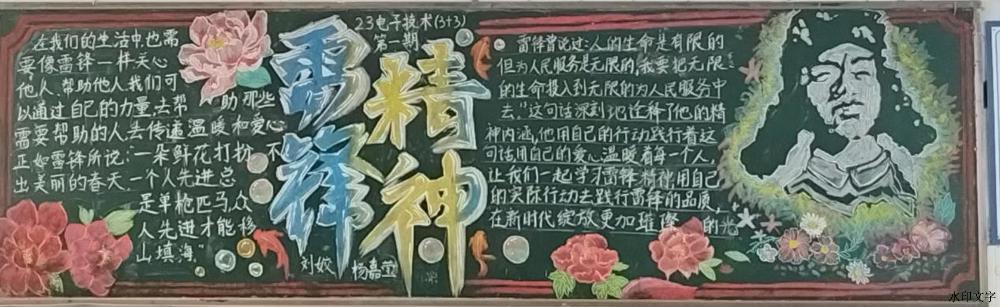 在我们的生活中,也需
要像雷锋一样关心
他人,帮助他人我们可
以通过自己的力量,去帮助那些
需要帮助的人,去传递温暖和爱心
正如雷锋所说:"一朵鲜花打扮不
出美丽的春天,一个人先进总
是单枪匹马,众
人先进才能移
山填海"
23电子技术(3+3)
第一期
雷锋
精神
刘姣 杨嘉莹
雷锋曾说过:人的生命是有限的
但为人民服务是无限的,我要把无限
的生命投入到无限的为人民服务中
去。"这句话深刻地诠释了他的精
神内涵,他用自己的行动践行着这
句话用自己的爱心温暖着每一个人,
让我们一起学习雷锋精神,用自己
的实际行动去践行雷锋的品质,
在新时代绽放更加璀璨的光
水印文字